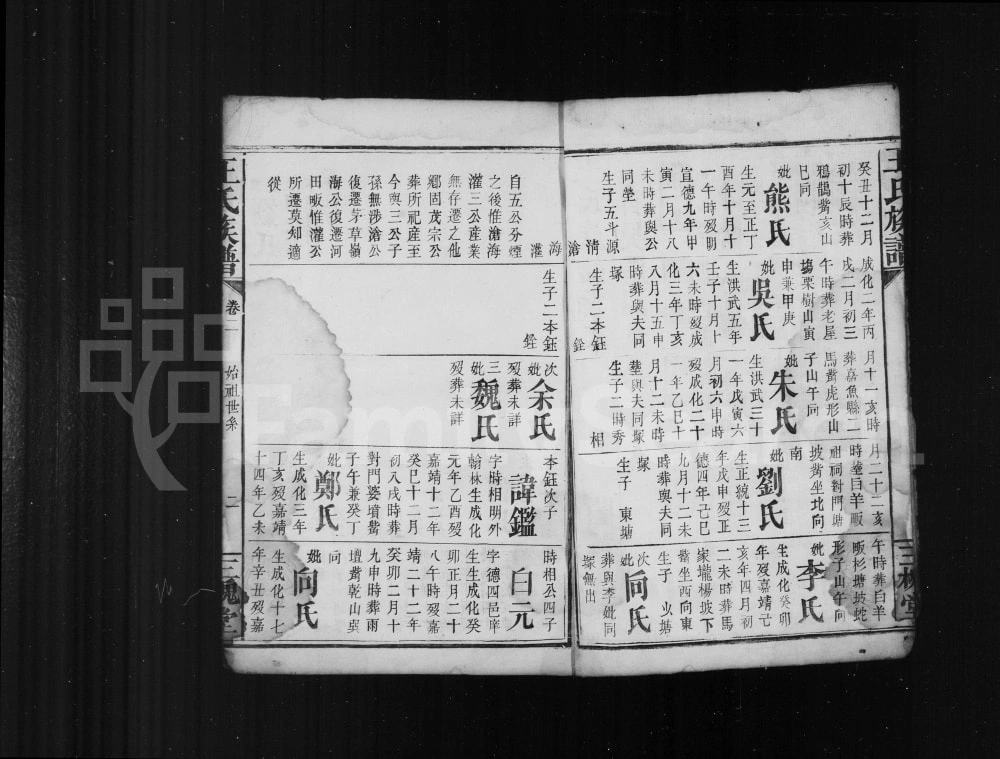 王氏族譜
癸丑十二月
初十辰時葬
鴉鵲觜亥山
巳同
妣熊氏
生元至正丁
酉年十月十
一午時歿明
宣德九年甲
寅二月十八
未時葬與公
同塋
生子五斗源
清
滄
海
灌
成化二年丙
戌二月初三
午時葬老屋
塲栗樹山寅
申兼甲庚
妣吳氏
生洪武五年
壬子十月十
六未時歿成
化三年丁亥
八月十五申
時葬與夫同
塚
生子二本鈺
銓
月十一亥時
葬嘉魚縣二
馬觜虎形山
子山午同
妣朱氏
生洪武三十
一年戊寅六
月初六申時
歿成化二十
一年乙巳十
月十二未時
葬與夫同塚
生子二時秀
相
月二十二亥
時葬白羊畈
祖祠對門塘
坡觜坐北向
南
妣劉氏
生正統十三
年戊申歿正
德四年己巳
九月十二未
時葬與夫同
塚
生子 東塘
午時葬白羊
畈杉塘坡蛇
形子山午向
妣李氏
生成化癸卯
年歿嘉靖己
亥年四月初
二未時葬馬
家壠楊坡下
觜坐西向東
生子
次妣向氏
葬與李妣同
塚無出
三槐堂
自五公分煙
之後惟滄海
灌三公產業
無存遷之他
鄉固茂宗公
葬所祀產至
今與三公子
孫無涉滄公
復遷茅草嶺
海公復遷河
田畈惟灌公
所遷莫知適
從
生子二本鈺
銓
次妣余氏
歿葬未詳
三妣魏氏
歿葬未詳
本鈺次子
諱鑑
字時相明外
翰林生成化
元年乙酉歿
嘉靖十二年
癸巳十二月
初八戌時葬
對門婆墳觜
子午兼癸丁
妣鄭氏
生成化三年
丁亥歿嘉靖
十四年乙未
時相公四子
白元
字德四邑庠
生生成化癸
卯正月二十
八午時歿嘉
靖二十二年
癸卯二月十
九申時葬兩
壇觜乾山巽
向
妣向氏
生成化十七
年辛丑歿嘉
王氏族譜
卷二
始祖世系
二
三槐堂
FamilySearch